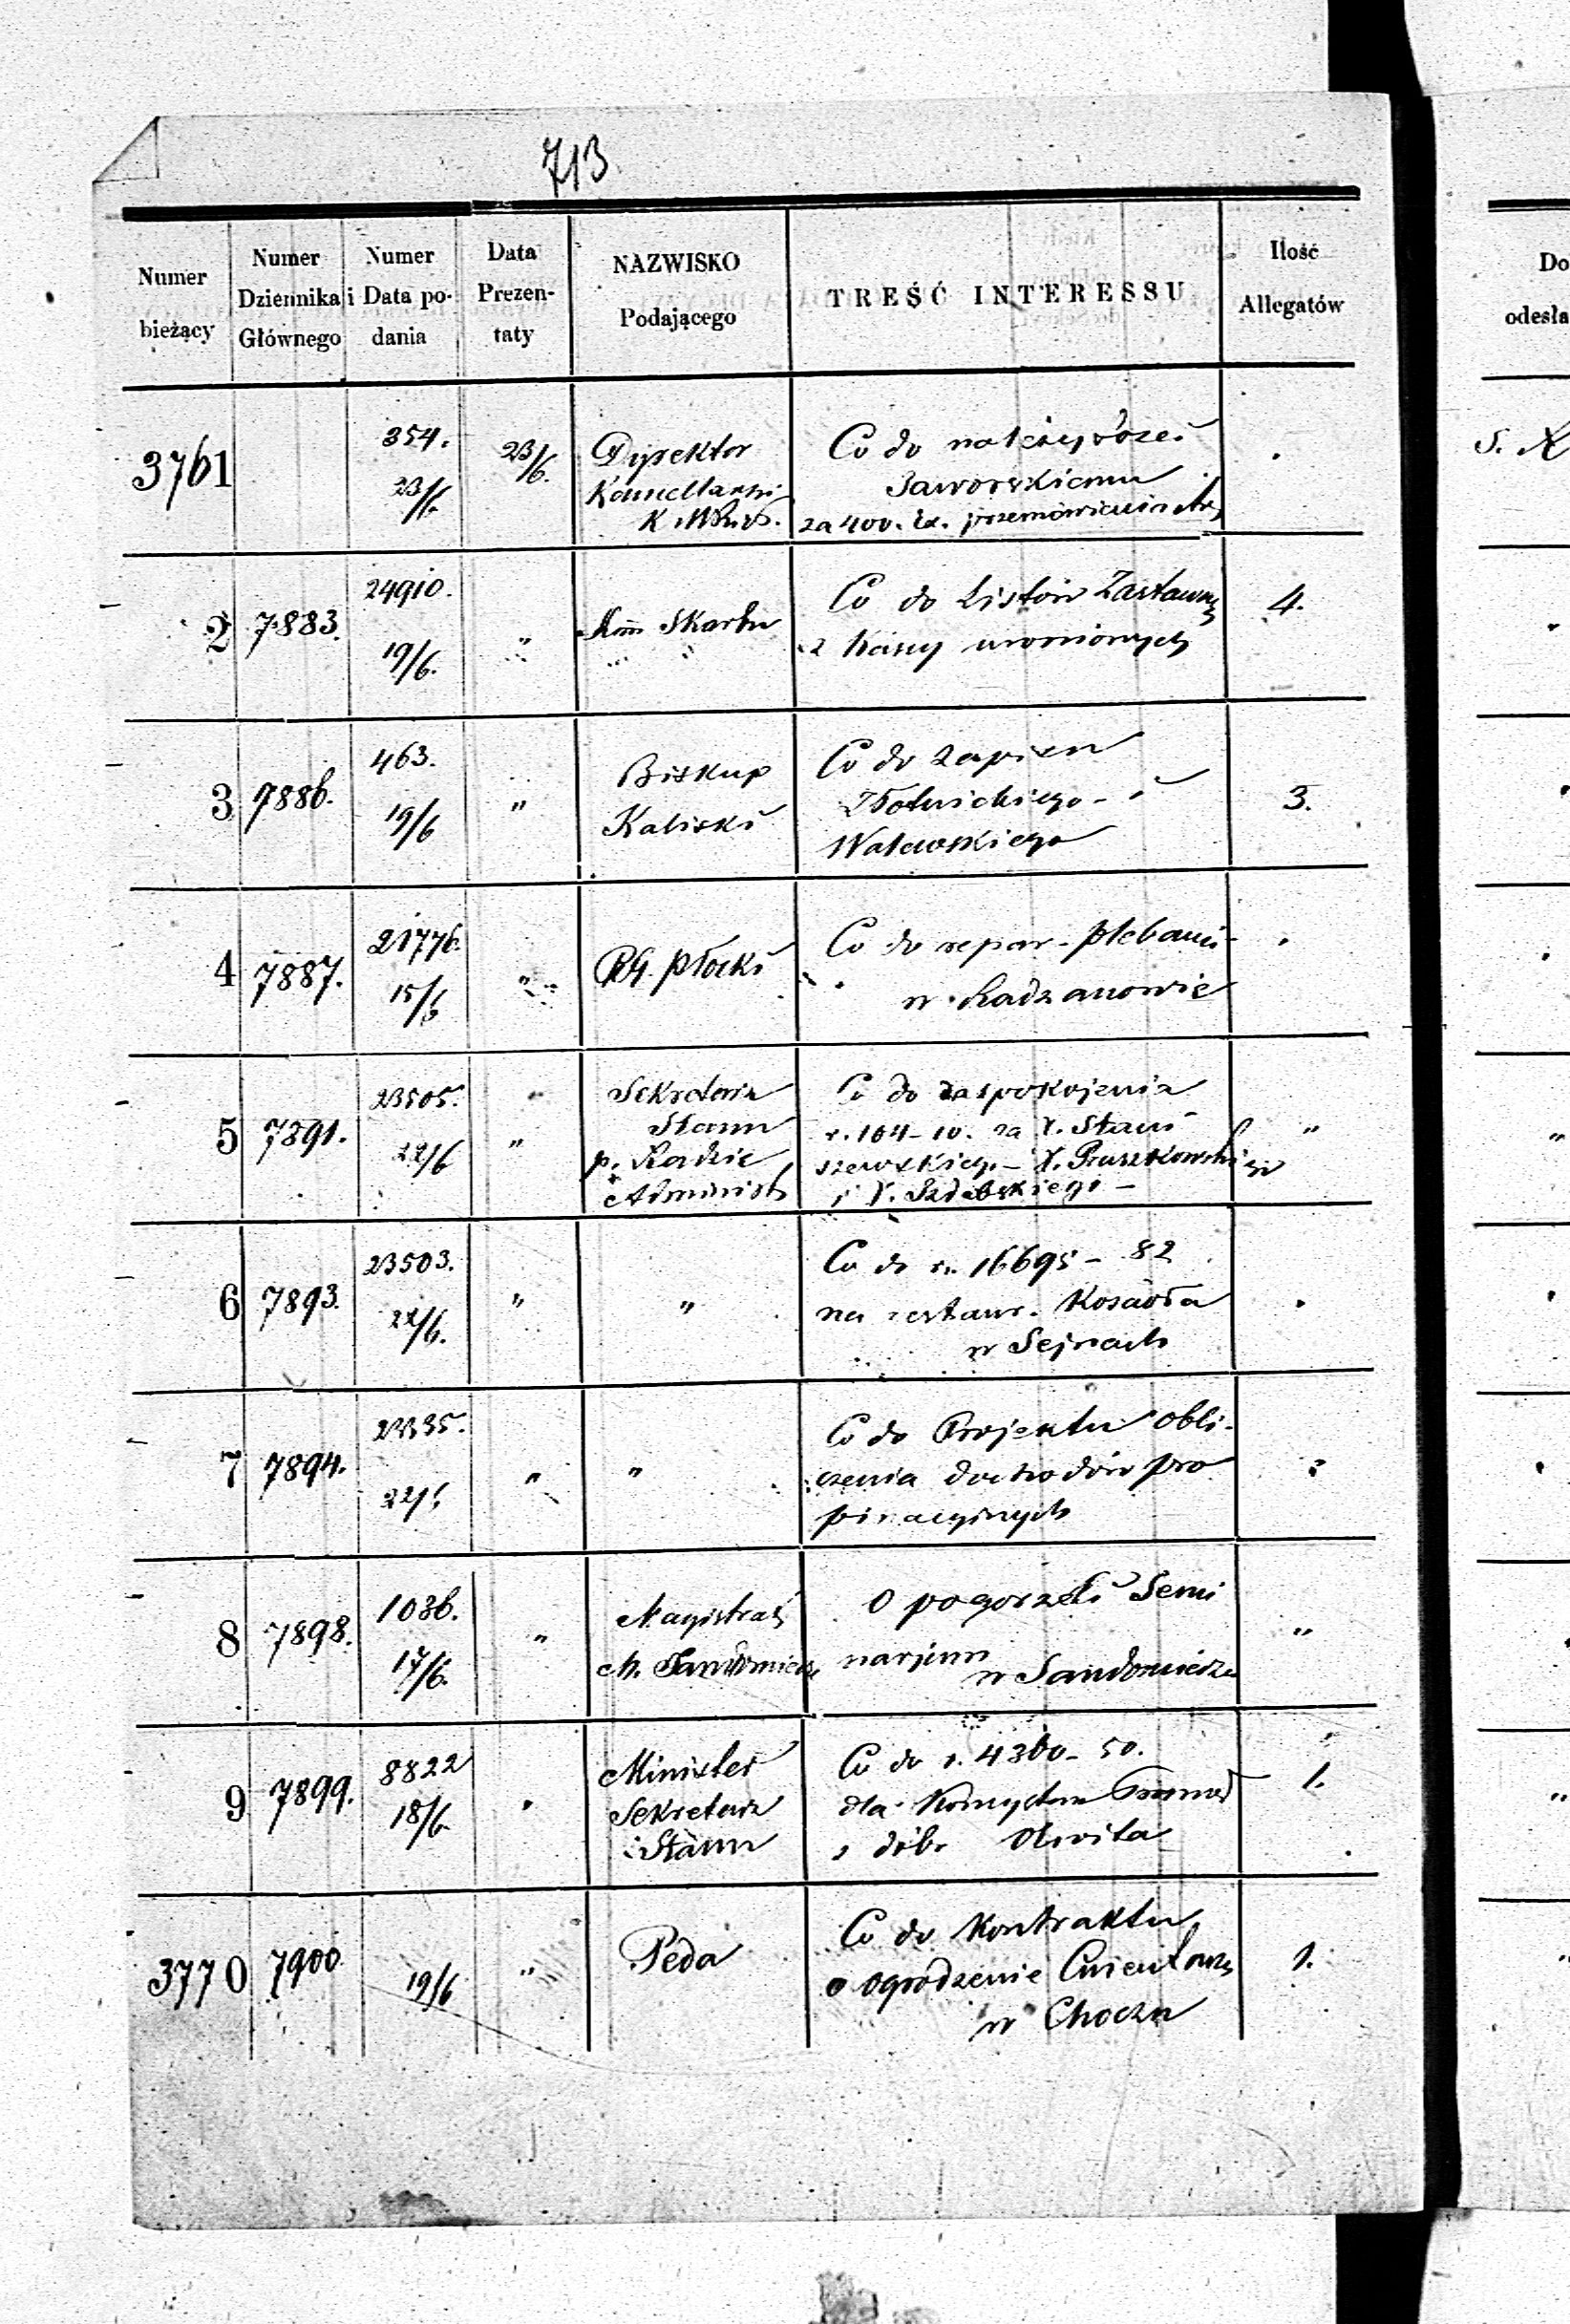 713
Numer bieżący
Numer Dziennika Głównego
Numer i Data podania
Data Prezentaty
NAZWISKO Podającego
TREŚĆ INTERESSU
Ilość Allegatów
Do
odesła
3761
354.
23/6.
23/6.
Dyrektor
Kancellaryi
Co do
Jaworskiemu
za 400.
S.
2
7883.
24910.
19/6.
"
Kom Skarbu
Co do Listów Zastawnych
z Kassy uronionych
4.
3
7886.
463.
19/6
"
Biskup
Kaliski
Co do zapisu
Złotnickiego - i
Walewskiego
3.
4
7887.
21776.
15/6
"
RG. Płocki
Co do repar. plebanii
w Radzanowie
5
7891.
23505.
22/6
"
Sekretarz
Stanu
p. Radzie
Administ
Co do zaspokojenia
r. 164-10. za X. Stani
szewskiego - X. Pruszkowskiego
i X.
"
6
7893.
23503.
22/6.
"
"
Co do r. 16695 - 82
na restaur. Kościoła
w Sejnach
7
7894.
22/6
"
"
Co do Projektu obli-
czenia dochodów pro
pinacyjnych
8
7898.
1036.
17/6.
"
Magistrat
M. Sandomierz
O pogorzeli Semi
narjum
w Sandomierzu
"
9
7899.
8822
18/6
Minister
Sekretarz
Stanu
Co do r. 4360 - 50.
dla
z dóbr Olwita
1.
3770
7900
19/6
"
Peda
Co do Kontraktu
o ogrodzenie Cmentarza
w Choczu
1.